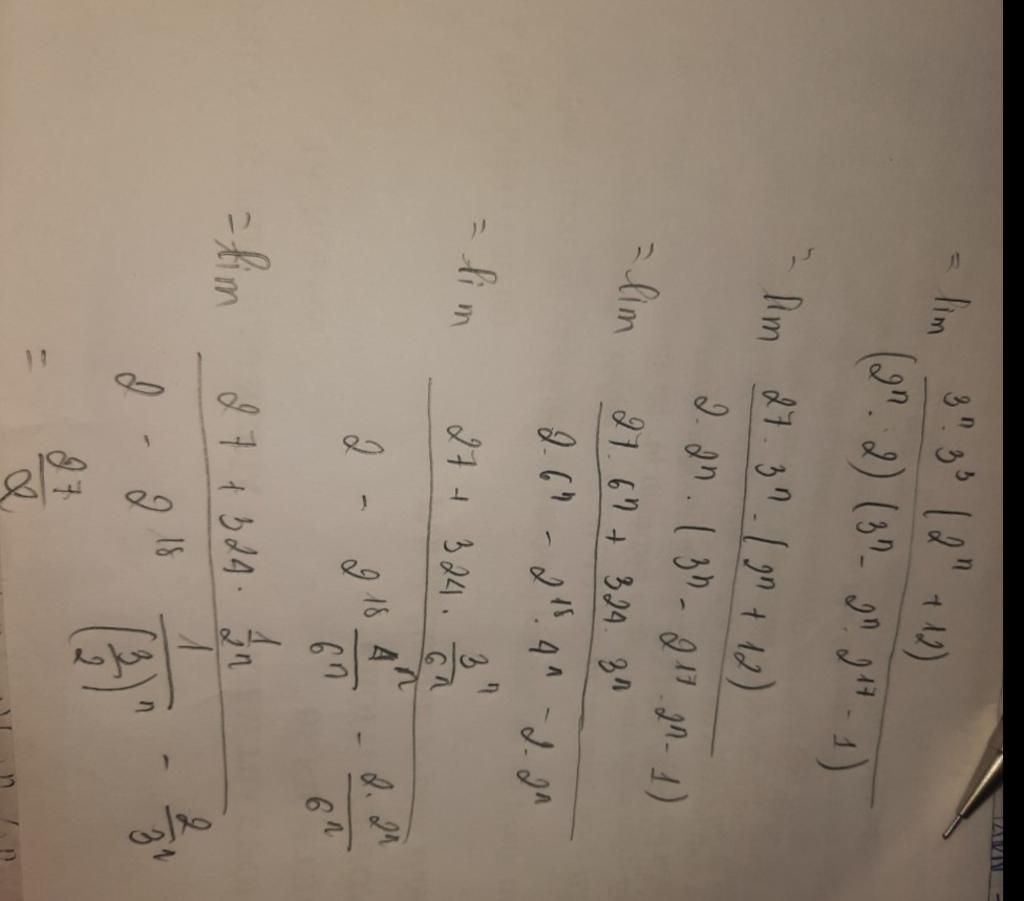 = lim 3ⁿ·3³ (2ⁿ + 12)
(2ⁿ·2) (3ⁿ - 2ⁿ·2¹⁷ - 1)
= lim 27·3ⁿ·(2ⁿ + 12)
2·2ⁿ·(3ⁿ - 2¹⁷·2ⁿ - 1)
= lim 27·6ⁿ + 324·3ⁿ
2·6ⁿ - 2¹⁸·4ⁿ - 2·2ⁿ
= lim 27 + 324·3ⁿ/6ⁿ
2 - 2¹⁸ 4ⁿ/6ⁿ - 2·2ⁿ/6ⁿ
= lim 27 + 324·1/2ⁿ
2 - 2¹⁸ 1/(3/2)ⁿ - 2/3ⁿ
= 27/2